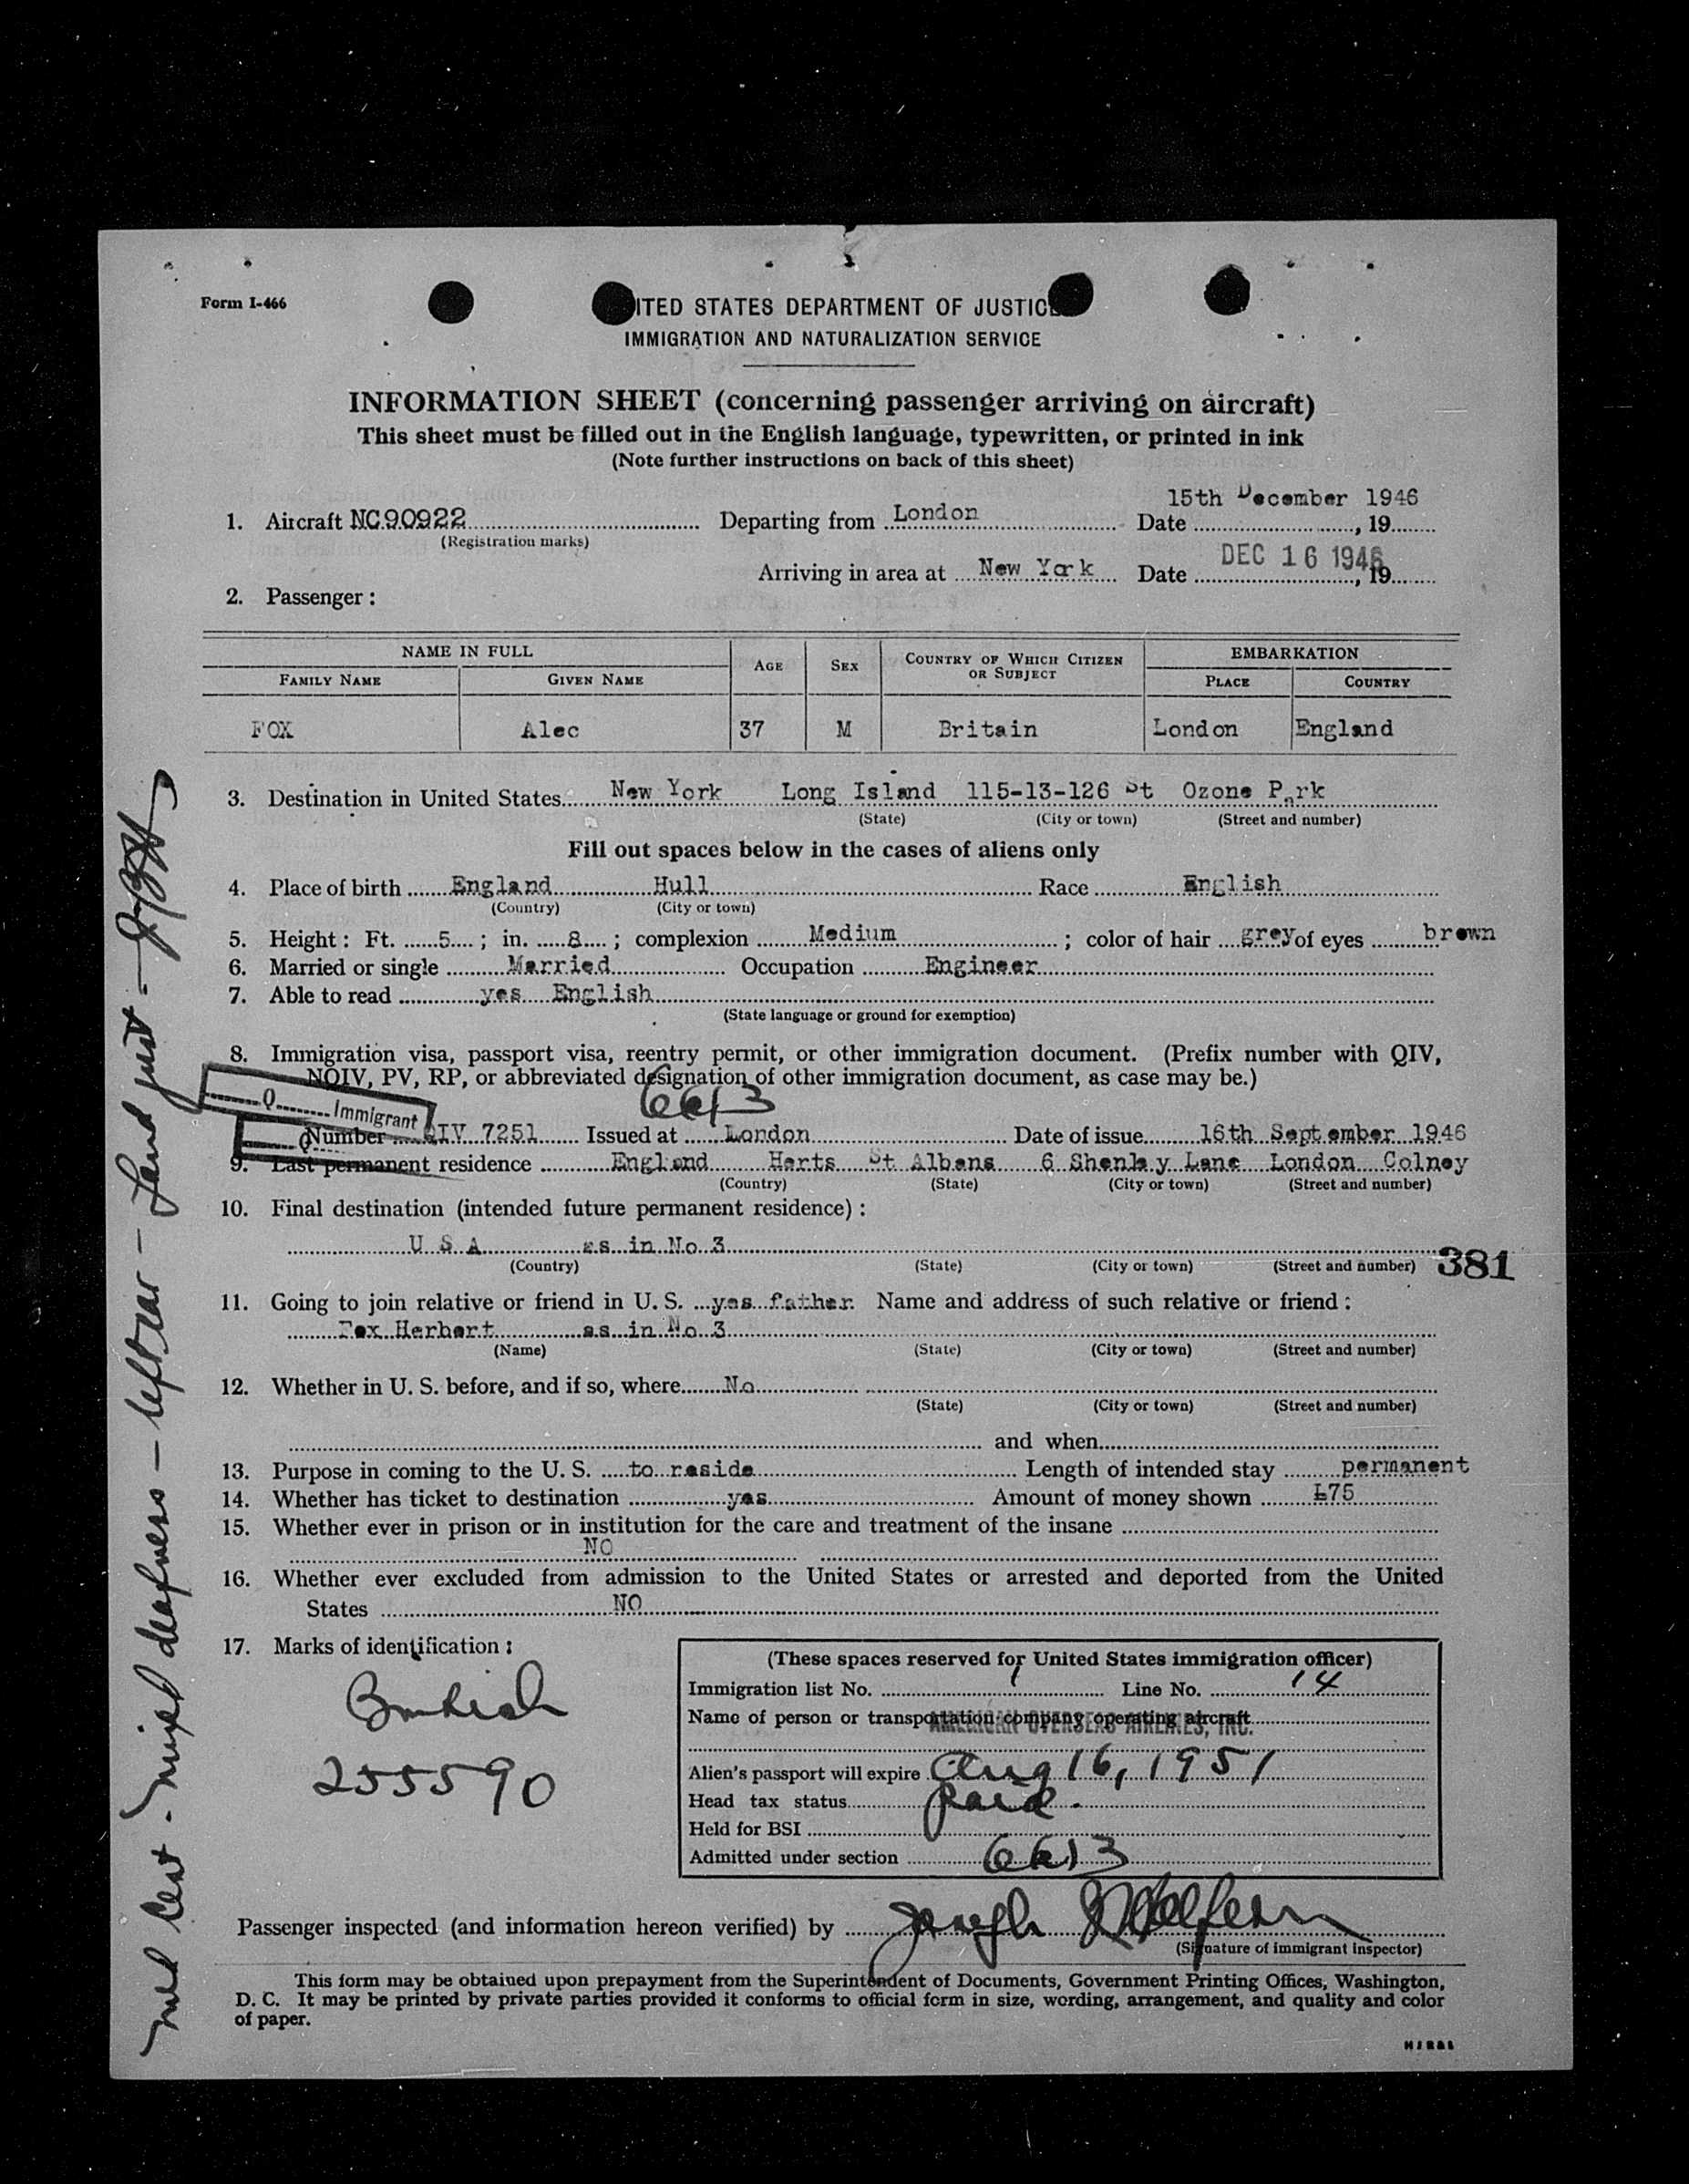 Form I-466
ITED STATES DEPARTMENT OF JUSTIC
IMMIGRATION AND NATURALIZATION SERVICE
INFORMATION SHEET (concerning passenger arriving on aircraft)
This sheet must be filled out in the English language, typewritten, or printed in ink
(Note further instructions on back of this sheet)
15th December 1946
1. Aircraft NC90922 Departing from London Date , 19
(Registration marks)
DEC 16 1946
Arriving in area at New York Date , 19
2. Passenger:
NAME IN FULL AGE SEX COUNTRY OF WHICH CITIZEN OR SUBJECT EMBARKATION
FAMILY NAME GIVEN NAME PLACE COUNTRY
FOX Alec 37 M Britain London England
3. Destination in United States New York Long Island 115-13-126 St Ozone Park
(State) (City or town) (Street and number)
Fill out spaces below in the cases of aliens only
4. Place of birth England Hull Race English
(Country) (City or town)
5. Height: Ft. 5 ; in. 8 ; complexion Medium ; color of hair grey of eyes brown
6. Married or single Married Occupation Engineer
7. Able to read yes English
(State language or ground for exemption)
8. Immigration visa, passport visa, reentry permit, or other immigration document. (Prefix number with QIV,
NQIV, PV, RP, or abbreviated designation of other immigration document, as case may be.)
Q Immigrant
6613
Number QIV 7251 Issued at London Date of issue 16th September 1946
9. Last permanent residence England Herts St Albans 6 Shenley Lane London Colney
(Country) (State) (City or town) (Street and number)
10. Final destination (intended future permanent residence):
U S A as in No 3
(Country) (State) (City or town) (Street and number)
381
11. Going to join relative or friend in U. S. yes father Name and address of such relative or friend:
Fox Herbert as in No 3
(Name) (State) (City or town) (Street and number)
12. Whether in U. S. before, and if so, where No
(State) (City or town) (Street and number)
and when
13. Purpose in coming to the U. S. to reside Length of intended stay permanent
14. Whether has ticket to destination yes Amount of money shown £75
15. Whether ever in prison or in institution for the care and treatment of the insane
NO
16. Whether ever excluded from admission to the United States or arrested and deported from the United
States NO
17. Marks of identification:
British
255590
(These spaces reserved for United States immigration officer)
Immigration list No. 1 Line No. 14
Name of person or transportation company operating aircraft
AMERICAN OVERSEAS AIRLINES, INC.
Alien's passport will expire Aug 16, 1951
Head tax status Paid.
Held for BSI
Admitted under section 6613
Passenger inspected (and information hereon verified) by Joseph
(Signature of immigrant inspector)
This form may be obtained upon prepayment from the Superintendent of Documents, Government Printing Offices, Washington,
D. C. It may be printed by private parties provided it conforms to official form in size, wording, arrangement, and quality and color
of paper.
Med Cert - deafness - left ear -